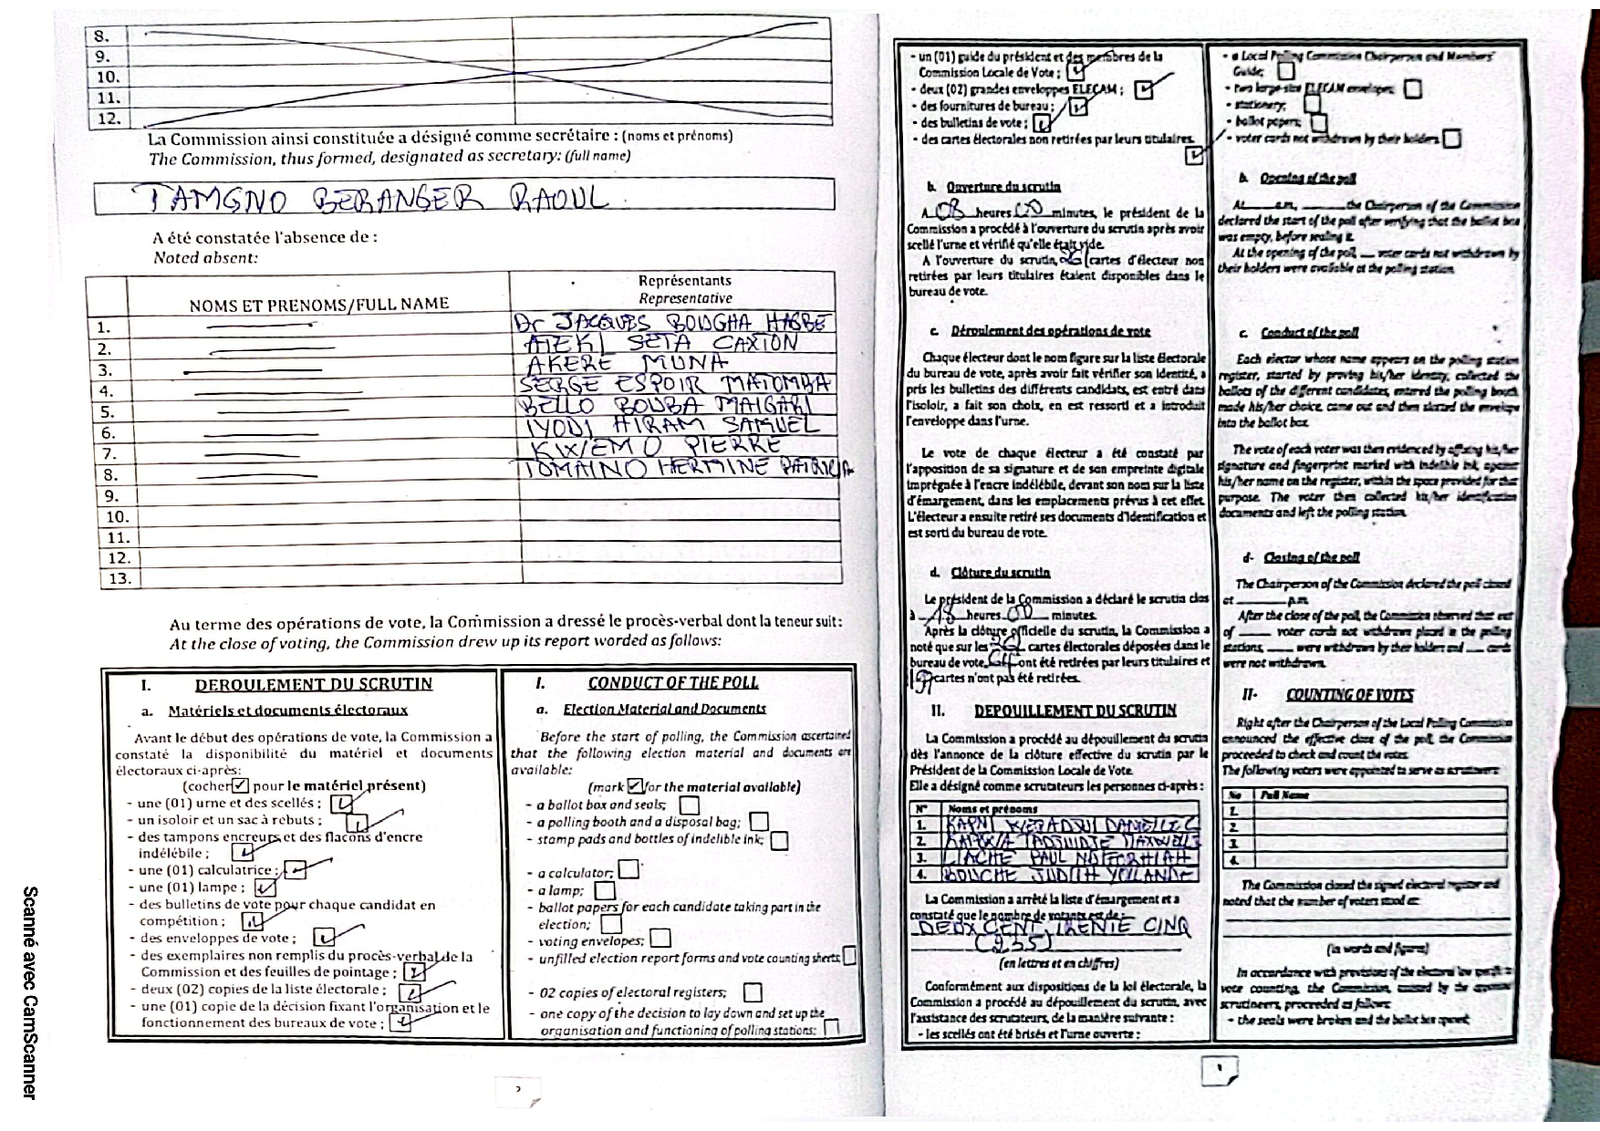 8.
9.
10.
11.
12.
La Commission ainsi constituée a désigné comme secrétaire : (noms et prénoms)
The Commission, thus formed, designated as secretary: (full name)
TAMGNO BERANGER RAOUL
A été constatée l'absence de :
Noted absent:
NOMS ET PRENOMS/FULL NAME
Représentants
Representative
1. Dr JACQUES BOUGHA HAGBE
2. ATEKI SETA CAXTON
3. AKERE MUNA
4. SERGE ESPOIR MATOMBA
5. BELLO BOUBA MAIGARI
6. IYODI HIRAM SAMUEL
7. PIERRE
8. TOMAINO HERMINE PATRICIA
9.
10.
11.
12.
13.
Au terme des opérations de vote, la Commission a dressé le procès-verbal dont la teneur suit:
At the close of voting, the Commission drew up its report worded as follows:
I. DEROULEMENT DU SCRUTIN
a. Matériels et documents électoraux
Avant le début des opérations de vote, la Commission a
constaté la disponibilité du matériel et documents
électoraux ci-après:
(cocher ☑ pour le matériel présent)
- une (01) urne et des scellés ;
- un isoloir et un sac à rebuts ;
- des tampons encreurs et des flacons d'encre
indélébile ;
- une (01) calculatrice ;
- une (01) lampe ;
- des bulletins de vote pour chaque candidat en
compétition ;
- des enveloppes de vote ;
- des exemplaires non remplis du procès-verbal de la
Commission et des feuilles de pointage ;
- deux (02) copies de la liste électorale ;
- une (01) copie de la décision fixant l'organisation et le
fonctionnement des bureaux de vote ;
I. CONDUCT OF THE POLL
a. Election Material and Documents
Before the start of polling, the Commission ascertained
that the following election material and documents are
available:
(mark ☑ for the material available)
- a ballot box and seals;
- a polling booth and a disposal bag;
- stamp pads and bottles of indelible ink;
- a calculator;
- a lamp;
- ballot papers for each candidate taking part in the
election;
- voting envelopes;
- unfilled election report forms and vote counting sheets
- 02 copies of electoral registers;
- one copy of the decision to lay down and set up the
organisation and functioning of polling stations;
- un (01) guide du président et des membres de la
Commission Locale de Vote ;
- deux (02) grandes enveloppes ELECAM ;
- des fournitures de bureau ;
- des bulletins de vote ;
- des cartes électorales non retirées par leurs titulaires.
b. Ouverture du scrutin
A 08 heures 00 minutes, le président de la
Commission a procédé à l'ouverture du scrutin après avoir
scellé l'urne et vérifié qu'elle était vide.
A l'ouverture du scrutin, cartes d'électeur non
retirées par leurs titulaires étaient disponibles dans le
bureau de vote.
c. Déroulement des opérations de vote
Chaque électeur dont le nom figure sur la liste électorale
du bureau de vote, après avoir fait vérifier son identité, a
pris les bulletins des différents candidats, est entré dans
l'isoloir, a fait son choix, en est ressorti et a introduit
l'enveloppe dans l'urne.
Le vote de chaque électeur a été constaté par
l'apposition de sa signature et de son empreinte digitale
imprégnée à l'encre indélébile, devant son nom sur la liste
d'émargement, dans les emplacements prévus à cet effet.
L'électeur a ensuite retiré ses documents d'identification et
est sorti du bureau de vote.
d. Clôture du scrutin
Le président de la Commission a déclaré le scrutin clos
à 18 heures 00 minutes.
Après la clôture officielle du scrutin, la Commission a
noté que sur les cartes électorales déposées dans le
bureau de vote, ont été retirées par leurs titulaires et
cartes n'ont pas été retirées.
II. DEPOUILLEMENT DU SCRUTIN
La Commission a procédé au dépouillement du scrutin
dès l'annonce de la clôture effective du scrutin par le
Président de la Commission Locale de Vote.
Elle a désigné comme scrutateurs les personnes ci-après :
N° Noms et prénoms
1.
2.
3. PAUL
4. BOUCHE JUDITH YOLANDE
La Commission a arrêté la liste d'émargement et a
constaté que le nombre de votants est de :
DEUX CENT TRENTE CINQ
(235)
(en lettres et en chiffres)
Conformément aux dispositions de la loi électorale, la
Commission a procédé au dépouillement du scrutin, avec
l'assistance des scrutateurs, de la manière suivante :
- les scellés ont été brisés et l'urne ouverte ;
- a Local Polling Commission Chairperson and Members'
Guide;
- two large-size ELECAM envelopes;
- stationery;
- ballot papers;
- voter cards not withdrawn by their holders
b. Opening of the poll
At ____ a.m, ____ the Chairperson of the Commission
declared the start of the poll after verifying that the ballot box
was empty, before sealing it.
At the opening of the poll, ____ voter cards not withdrawn by
their holders were available at the polling station.
c. Conduct of the poll
Each elector whose name appears on the polling station
register, started by proving his/her identity, collected the
ballots of the different candidates, entered the polling booth,
made his/her choice, came out and then slotted the envelope
into the ballot box.
The vote of each voter was then evidenced by affixing his/her
signature and fingerprint marked with indelible ink, against
his/her name on the register, within the space provided for that
purpose. The voter then collected his/her identification
documents and left the polling station.
d- Closing of the poll
The Chairperson of the Commission declared the poll closed
at ____ p.m.
After the close of the poll, the Commission observed that out
of ____ voter cards not withdrawn placed in the polling
stations, ____ were withdrawn by their holders and ____ cards
were not withdrawn.
II- COUNTING OF VOTES
Right after the Chairperson of the Local Polling Commission
announced the effective close of the poll, the Commission
proceeded to check and count the votes.
The following voters were appointed to serve as scrutineers:
No Full Name
1.
2.
3.
4.
The Commission closed the signed electoral register and
noted that the number of voters stood at:
(in words and figures)
In accordance with provisions of the electoral law
vote counting, the Commission, assisted by the
scrutineers, proceeded as follows:
- the seals were broken and the ballot box opened;
Scanné avec CamScanner